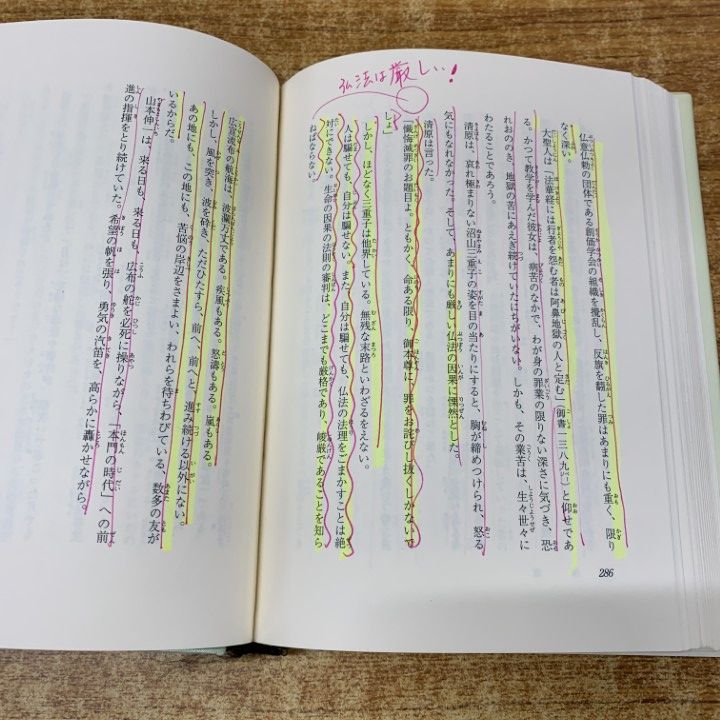 弘法は厳しい!
仏意仏勅の団体である創価学会の組織を攪乱し、反旗を翻した罪はあまりにも重く、限り
なく深い。
大聖人は「法華経には行者を怨む者は阿鼻地獄の人と定む」(御書一三八九㌻)と仰せであ
る。かつて教学を学んだ彼女は、病苦のなかで、わが身の罪業の限りない深さに気づき、恐
れおののき、地獄の苦にあえぎ続けていたにちがいない。しかも、その業苦は、生々世々に
わたることであろう。
清原は、哀れ極まりない沼山三重子の姿を目の当たりにすると、胸が締めつけられ、怒る
気にもなれなかった。そして、あまりにも厳しい仏法の因果に慄然とした。
清原は言った。
「懺悔滅罪のお題目よ。ともかく、命ある限り、御本尊に、罪をお詫びし抜くしかないで
しょ」
しかし、ほどなく三重子は他界している。無残な末路といわざるをえない。
人は騙せても、自分は騙せない。また、自分は騙せても、仏法の法理をごまかすことは絶
対にできない。生命の因果の法則の審判は、どこまでも厳格であり、峻厳であることを知ら
ねばならない。
286
広宣流布の航海は、波瀾万丈である。疾風もある。怒濤もある。嵐もある。
しかし、風を突き、波を砕き、ただひたすら、前へ、前へと、進み続ける以外にない。
あの地にも、この地にも、苦悩の岸辺をさまよい、われらを待ちわびている、数多の友が
いるからだ。
山本伸一は、来る日も、来る日も、広布の舵を必死に操りながら、「本門の時代」への前
進の指揮をとり続けていた。希望の帆を張り、勇気の汽笛を、高らかに轟かせながら。